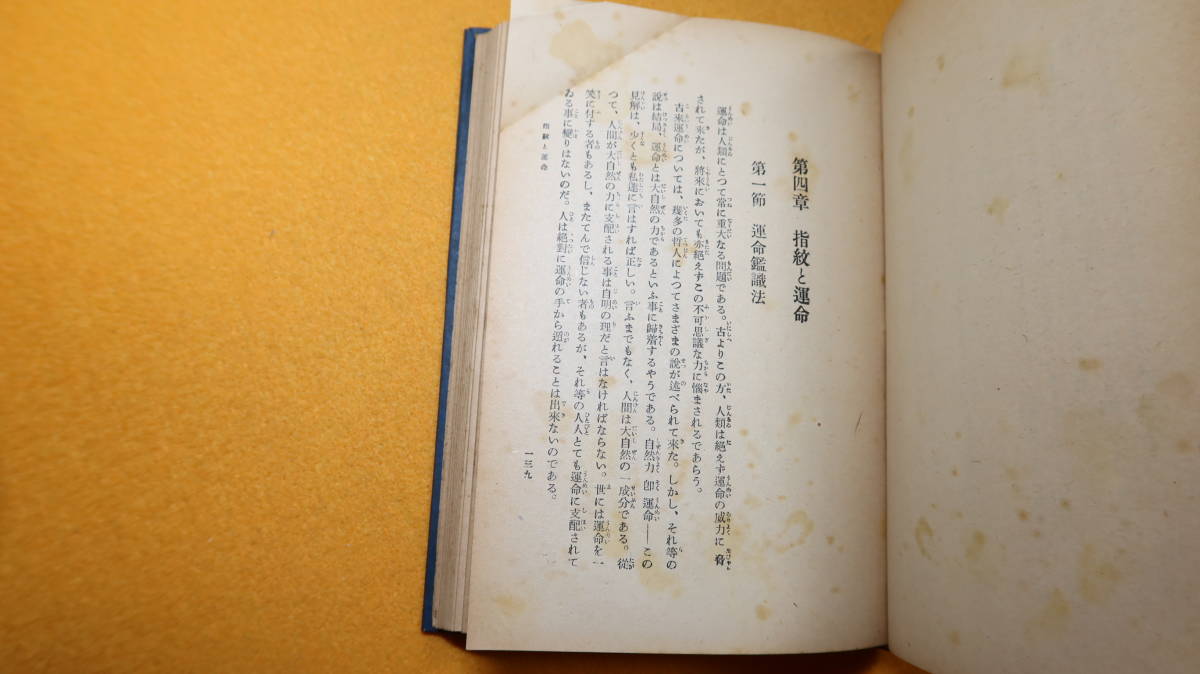 第四章 指紋と運命
第一節 運命鑑識法
運命は人類にとつて常に重大なる問題である。古よりこの方、人類は絕えず運命の威力に脅
されて來たが、將來においても亦絕えずこの不可思議な力に惱まされるであらう。
古來運命については、幾多の哲人によつてさまざまの說が述べられて來た。しかし、それ等の
說は結局、運命とは大自然の力であるといふ事に歸着するやうである。自然力卽運命――この
見解は、少くとも私達に言はすれば正しい。言ふまでもなく、人間は大自然の一成分である。從
つて、人間が大自然の力に支配される事は自明の理だと言はなければならない。世には運命を一
笑に付する者もあるし、またてんで信じない者もあるが、それ等の人人とても運命に支配されて
ゐる事に變りはないのだ。人は絕對に運命の手から遁れることは出來ないのである。
指紋と運命
一三九